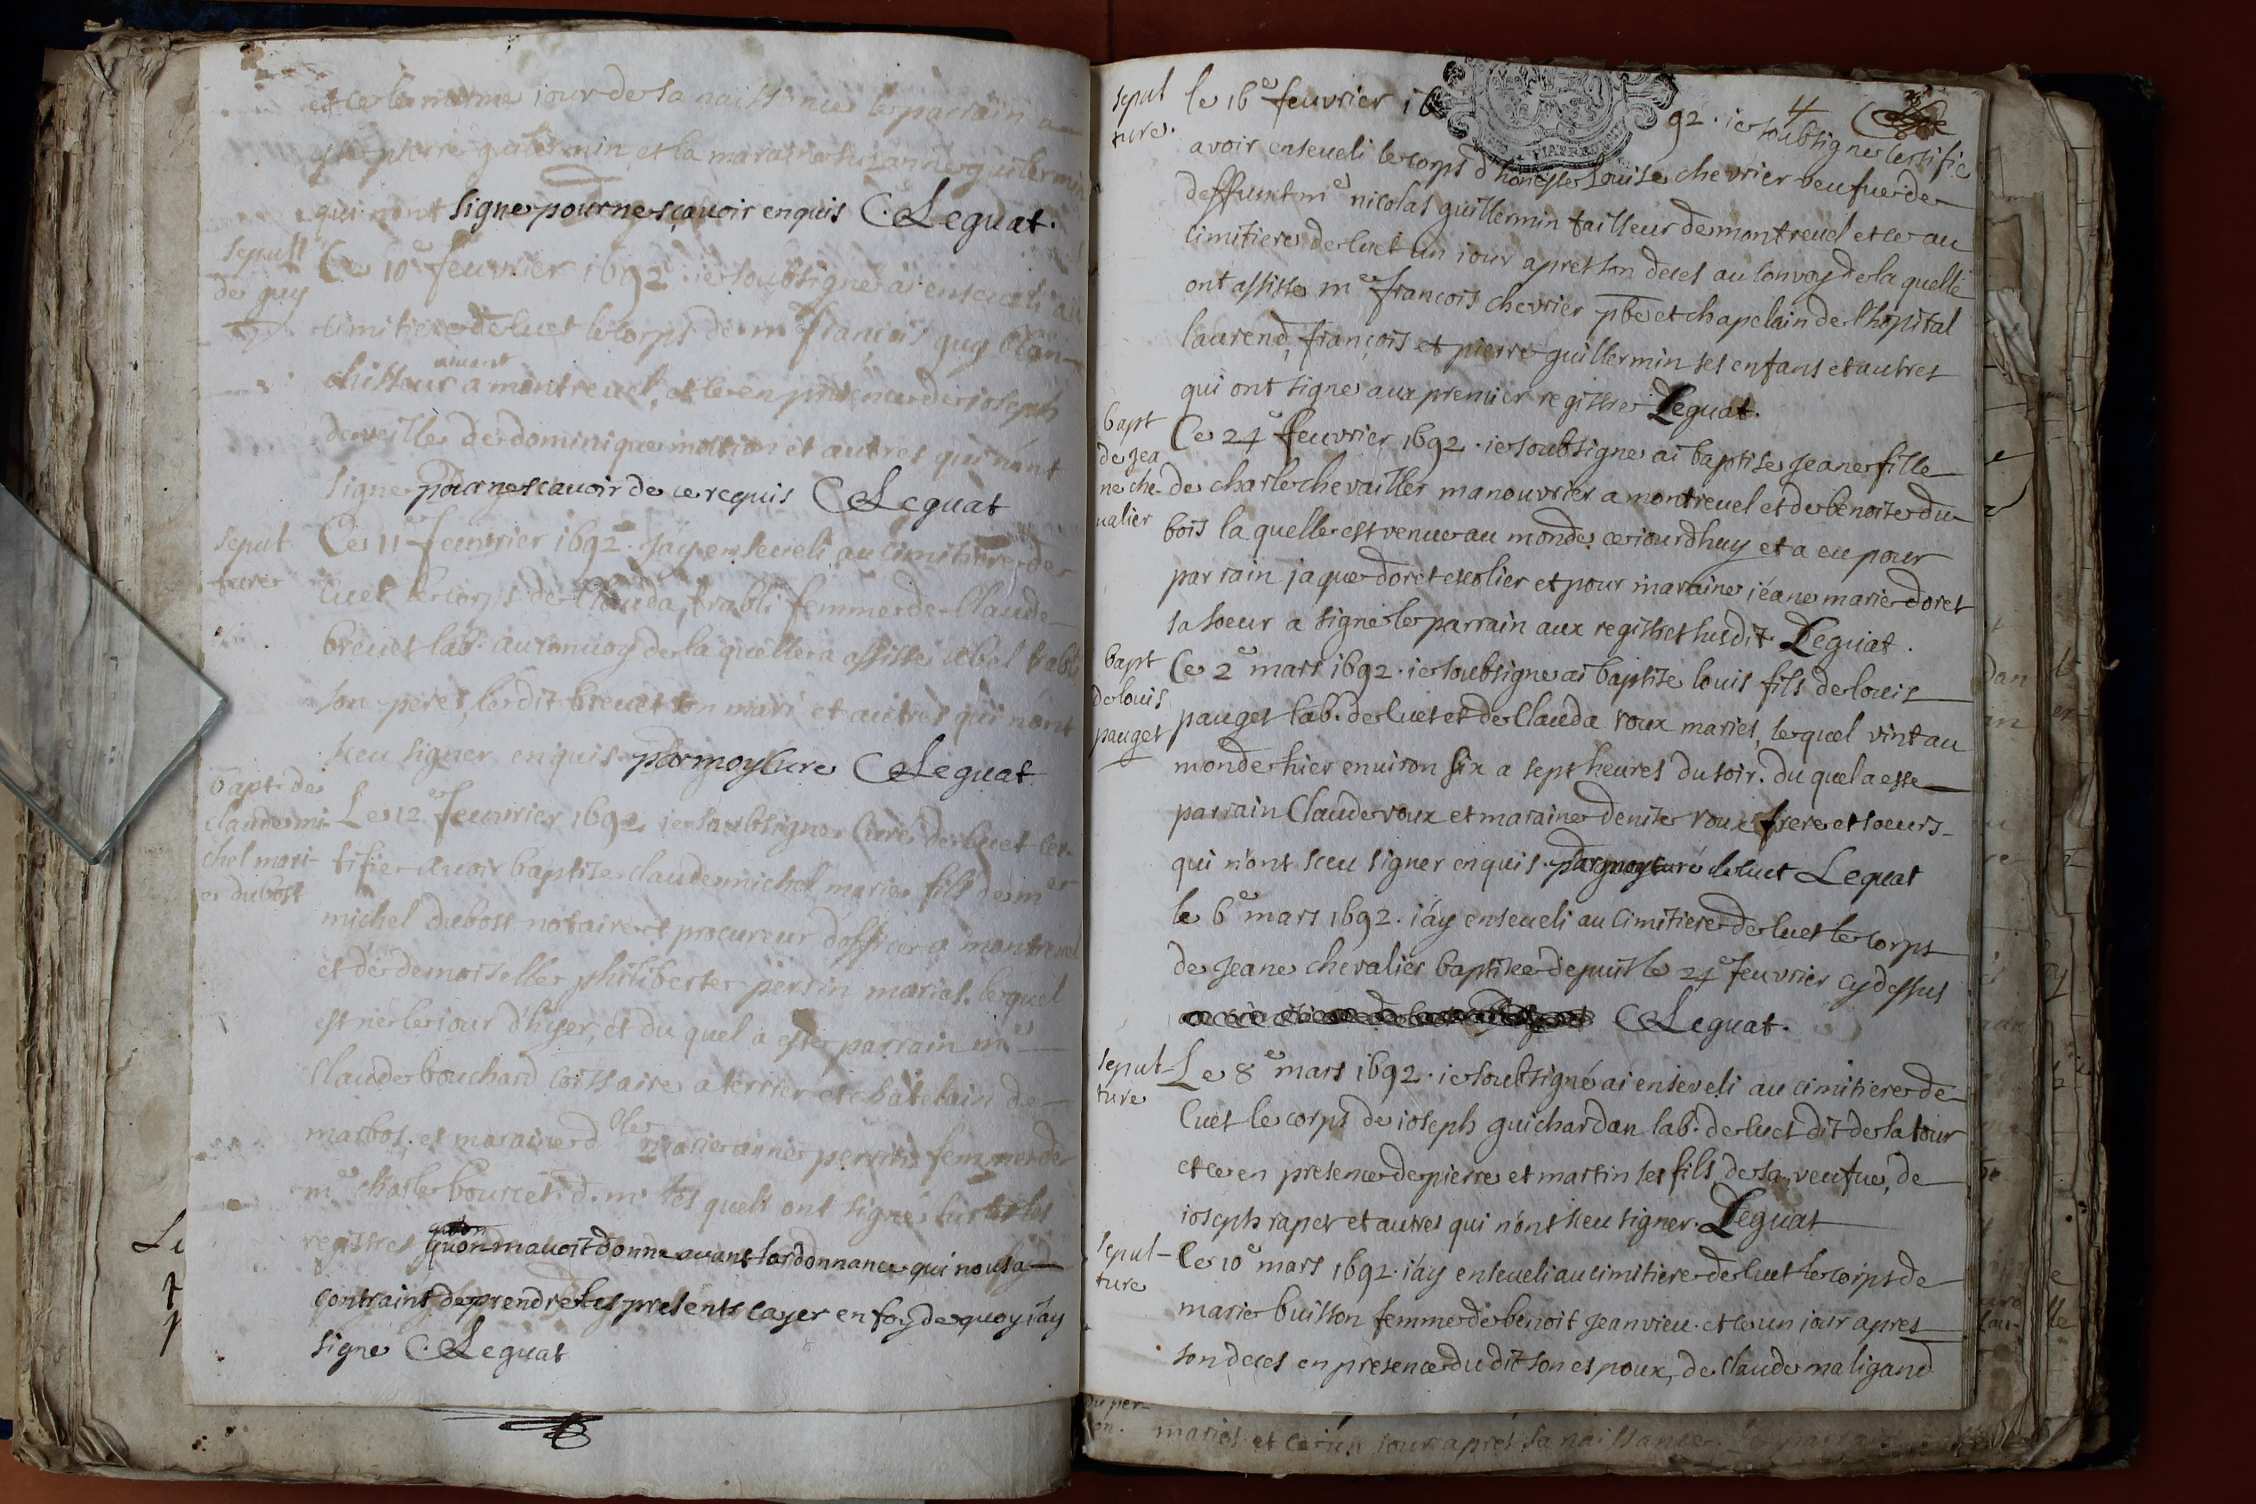 et ce le mesme jour de sa naissance le parrain a
esté pierre guillermin et la maraine suzanne guillermin
qui n'ont signe pour ne sçavoir enquis C. Leguat.
sepult
de guy
Ce 10e feuvrier 1692. ie soubsigné ai enseveli au
cimitiere de luet le corps de me françois guy blan-
chisseur vivant a montreuel, et ce en presence de joseph
de dominique et autres qui n'ont
signe pour ne scavoir de ce requis C Leguat
sepul
ture
Ce 11e feuvrier 1692. j'ay enseveli au cimitiere de
luet le corps de Clauda trabli femme de Claude
brevet lab. au convoy de la quelle a assisté
son pere, le dit brevet son mari et autres qui n'ont
sceu signer enquis par moy curé C Leguat
bapt. de
claude mi-
chel mari-
e dubost
Le 12e feuvrier 1692 ie soubsigne Curé de luet cer-
tifie avoir baptisé claude michel marie fils de me
michel dubost notaire et procureur d'office a montrevel
et de demoiselle philiberte perrin mariés. lequel
est né le jour d'hyer, et du quel a esté parrain me
Claude bouchard comissaire a terrier et chatelain de
marbos, et maraine dlle marie anne perrin femme de
me charle bourcet d. m. les quels ont signé sur les
registres qu'on m'avoit donné avant l'ordonnance qui nous a
contraint de prendre les presents cayer en foy de quoy j'ay
signé C. Leguat
4
sepul
ture.
le 16e feuvrier 1692. ie soubsigne certifie
avoir enseveli le corps d'honeste Louise chevrier veufue de
deffunt me nicolas guillermin tailleur de montreuel et ce au
cimitiere de luet un iour apres son deces au convoy de la quelle
ont assisté me françois chevrier pbre et chapelain de l'hopital
laurend, françois et pierre guillermin ses enfans et autres
qui ont signé aux premier registre Leguat.
bapt
de jea
ne che-
valier
Ce 24e feuvrier 1692. ie soubsigne ai baptise jeane fille
de charle chevallier manouvrier a montreuel et de benoite du-
bois la quelle est venue au monde ce iourdhuy et a eu pour
parrain jaque doret escolier et pour maraine jéane marie doret
sa soeur a signé le parrain aux registres susdit. Leguat.
bapt
de louis
pauget
Ce 2e mars 1692. ie soubsigne ai baptisé louis fils de louis
pauget lab. de luet et de Clauda roux mariés, lequel vint au
monde hier environ six a sept heures du soir. du quel a esté
parrain Claude roux et maraine denise roux frere et soeurs
qui n'ont sceu signer enquis. par moy curé de luet Leguat
le 6e mars 1692. j'ay enseveli au cimitiere de luet le corps
de jeane chevalier baptisée depuis le 24e feuvrier cy dessus
C Leguat.
sepul-
ture
Le 8e mars 1692. ie soubsigné ai enseveli au cimitiere de
luet le corps de joseph guichardan lab. de luet dit de la tour
et ce en presence de pierre et martin ses fils de sa veufue, de
joseph rapet et autres qui n'ont sceu signer. Leguat
sepul-
ture
Ce 10e mars 1692. j'ay enseveli au cimitiere de luet le corps de
marie buisson femme de benoit jeanvieu. et ce un jour apres
son deces en presence du dit son espoux, de claude maligand
mariés et ce un jour apres sa naissance.